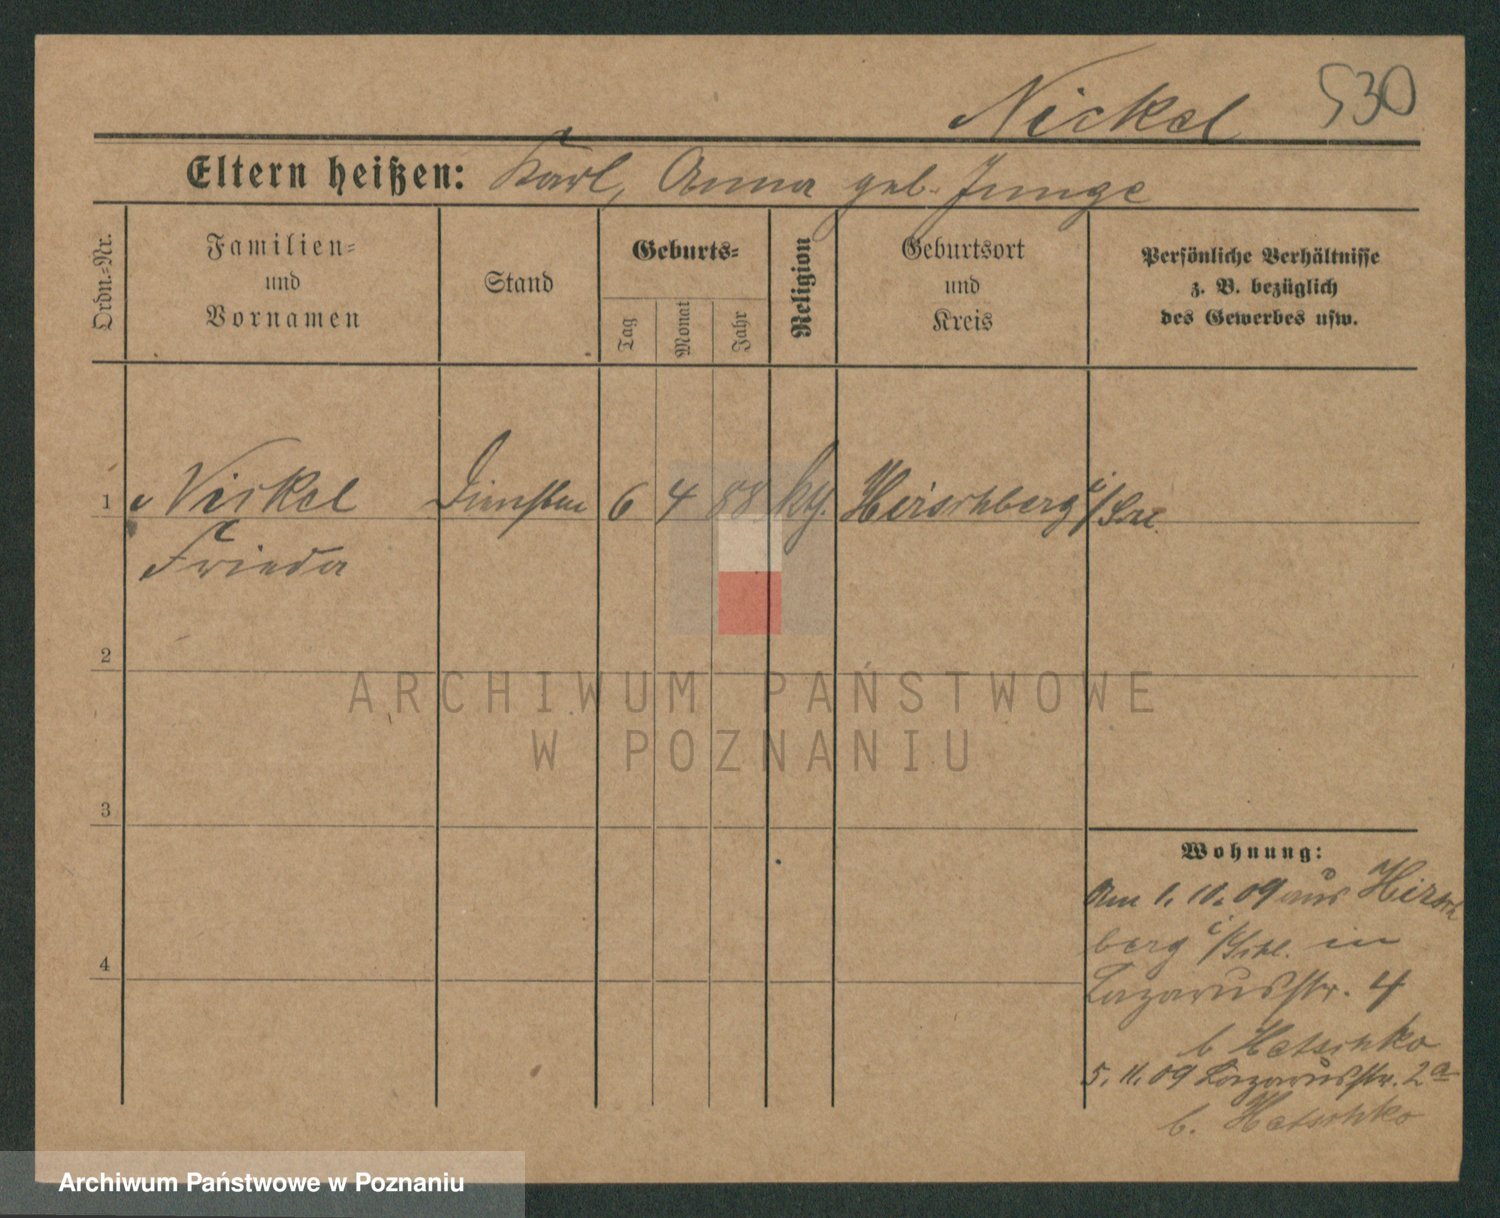 Nickel 530
Eltern heißen: Karl, Anna geb. Junge
Ordn.=Nr.
Familien=
und
Vornamen
Stand
Geburts=
Tag
Monat
Jahr
Religion
Geburtsort
und
Kreis
Persönliche Verhältnisse
z. B. bezüglich
des Gewerbes usw.
1 Nickel 6 4 88 Hirschberg i/
Frieda
2
3
4
Wohnung:
Am 1.10.09 aus Hirsch
berg i/Schl. in
Lazarusstr. 4
b Hatschko
5.11.09 Lazarusstr. 2a
b. Hatschko
ARCHIWUM PAŃSTWOWE
W POZNANIU
Archiwum Państwowe w Poznaniu